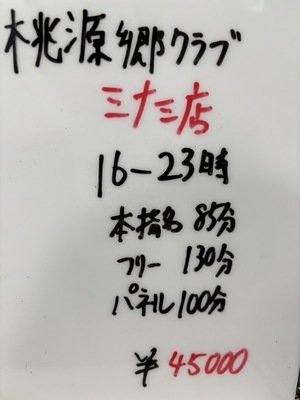 桃源郷クラブ
ミナミ店
16-23時
本指名 85分
フリー 130分
パネル 100分
¥ 45000